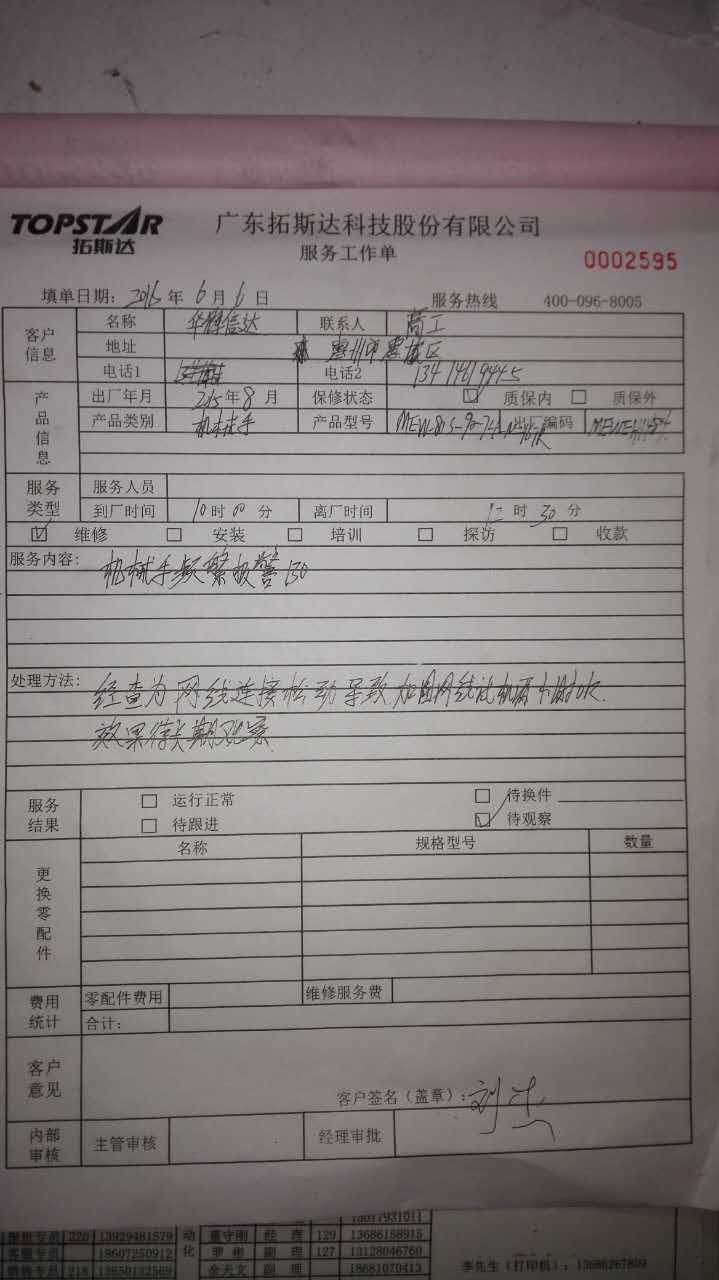 TOPSTAR 广东拓斯达科技股份有限公司
拓斯达 服务工作单 0002595
填单日期: 2016年6月6日 服务热线 400-096-8005
客户信息 名称 华辉信达 联系人 高工
地址 惠州市惠城区
电话1 电话2
产品信息 出厂年月 215年8月 保修状态 质保内 质保外
产品类别 机械手 产品型号 出厂编码
服务类型 服务人员
到厂时间 10时00分 离厂时间 12时30分
维修 安装 培训 探访 收款
服务内容: 机械手频繁报警130
处理方法: 经查为网线连接松动导致.加固网线
效果待长期观察
服务结果 运行正常 待换件
待跟进 待观察
更换零配件 名称 规格型号 数量
费用统计 零配件费用 维修服务费
合计:
客户意见
客户签名(盖章):刘
内部审核 主管审核 经理审批
13077931011
220 13929481579 动化 董守刚 经理 129 13686158915
客服专员 18607250912 罗彬 副理 127 13128046760
销售专员 218 13650132569 余天文 副理 18681070413
李先生(打印机): 13686267809